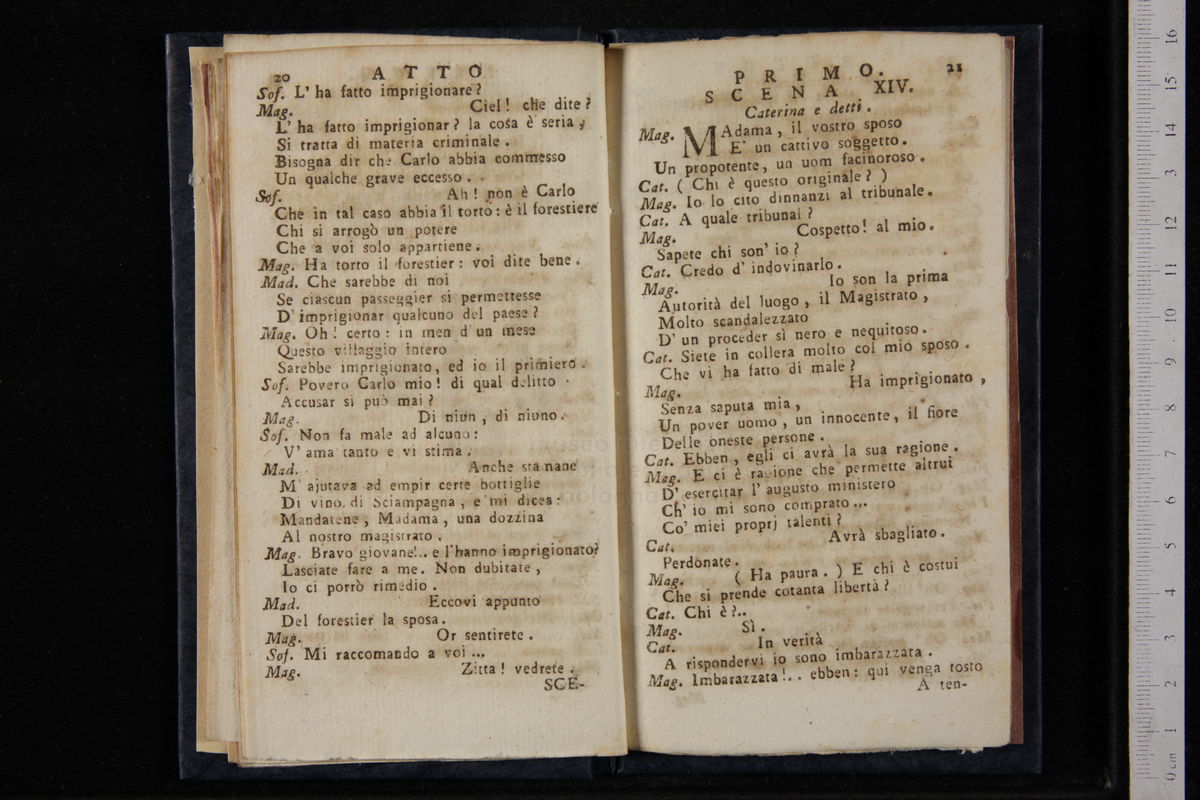 20 ATTO
Sof. L' ha fatto imprigionare?
Mag. Ciel! che dite?
L' ha fatto imprigionar? la cosa è seria,
Si tratta di materia criminale.
Bisogna dir che Carlo abbia commesso
Un qualche grave eccesso.
Sof. Ah! non è Carlo
Che in tal caso abbia il torto: è il forestiere
Chi si arrogò un potere
Che a voi solo appartiene.
Mag. Ha torto il forestier: voi dite bene.
Mad. Che sarebbe di noi
Se ciascun passeggier si permettesse
D' imprigionar qualcuno del paese?
Mag. Oh! certo: in men d' un mese
Questo villaggio intero
Sarebbe imprigionato, ed io il primiero.
Sof. Povero Carlo mio! di qual delitto
Accusar si può mai?
Mag. Di niun, di niuno.
Sof. Non fa male ad alcuno:
V' ama tanto e vi stima.
Mad. Anche stamane
M' ajutava ad empir certe bottiglie
Di vino di Sciampagna, e mi dicea:
Mandatene, Madama, una dozzina
Al nostro magistrato.
Mag. Bravo giovane!.. e l'hanno imprigionato?
Lasciate fare a me. Non dubitate,
Io ci porrò rimedio.
Mad. Eccovi appunto
Del forestier la sposa.
Mag. Or sentirete.
Sof. Mi raccomando a voi ...
Mag. Zitta! vedrete.
SCE-
PRIMO. 21
SCENA XIV.
Caterina e detti.
Mag. MAdama, il vostro sposo
E' un cattivo soggetto.
Un propotente, un uom facinoroso.
Cat. ( Chi è questo originale? )
Mag. Io lo cito dinnanzi al tribunale.
Cat. A quale tribunal?
Mag. Cospetto! al mio.
Sapete chi son' io?
Cat. Credo d' indovinarlo.
Mag. Io son la prima
Autorità del luogo, il Magistrato,
Molto scandalezzato
D' un proceder sì nero e nequitoso.
Cat. Siete in collera molto col mio sposo.
Che vi ha fatto di male?
Mag. Ha imprigionato,
Senza saputa mia,
Un pover uomo, un innocente, il fiore
Delle oneste persone.
Cat. Ebben, egli ci avrà la sua ragione.
Mag. E ci è ragione che permette altrui
D' esercitar l' augusto ministero
Ch' io mi sono comprato...
Co' miei proprj talenti?
Cat. Avrà sbagliato.
Perdonate.
Mag. ( Ha paura. ) E chi è costui
Che si prende cotanta libertà?
Cat. Chi è?..
Mag. Sì.
Cat. In verità
A rispondervi io sono imbarazzata.
Mag. Imbarazzata!.. ebben: qui venga tosto
A ten-
0 cm 1 2 3 4 5 6 7 8 9 10 11 12 13 14 15 16